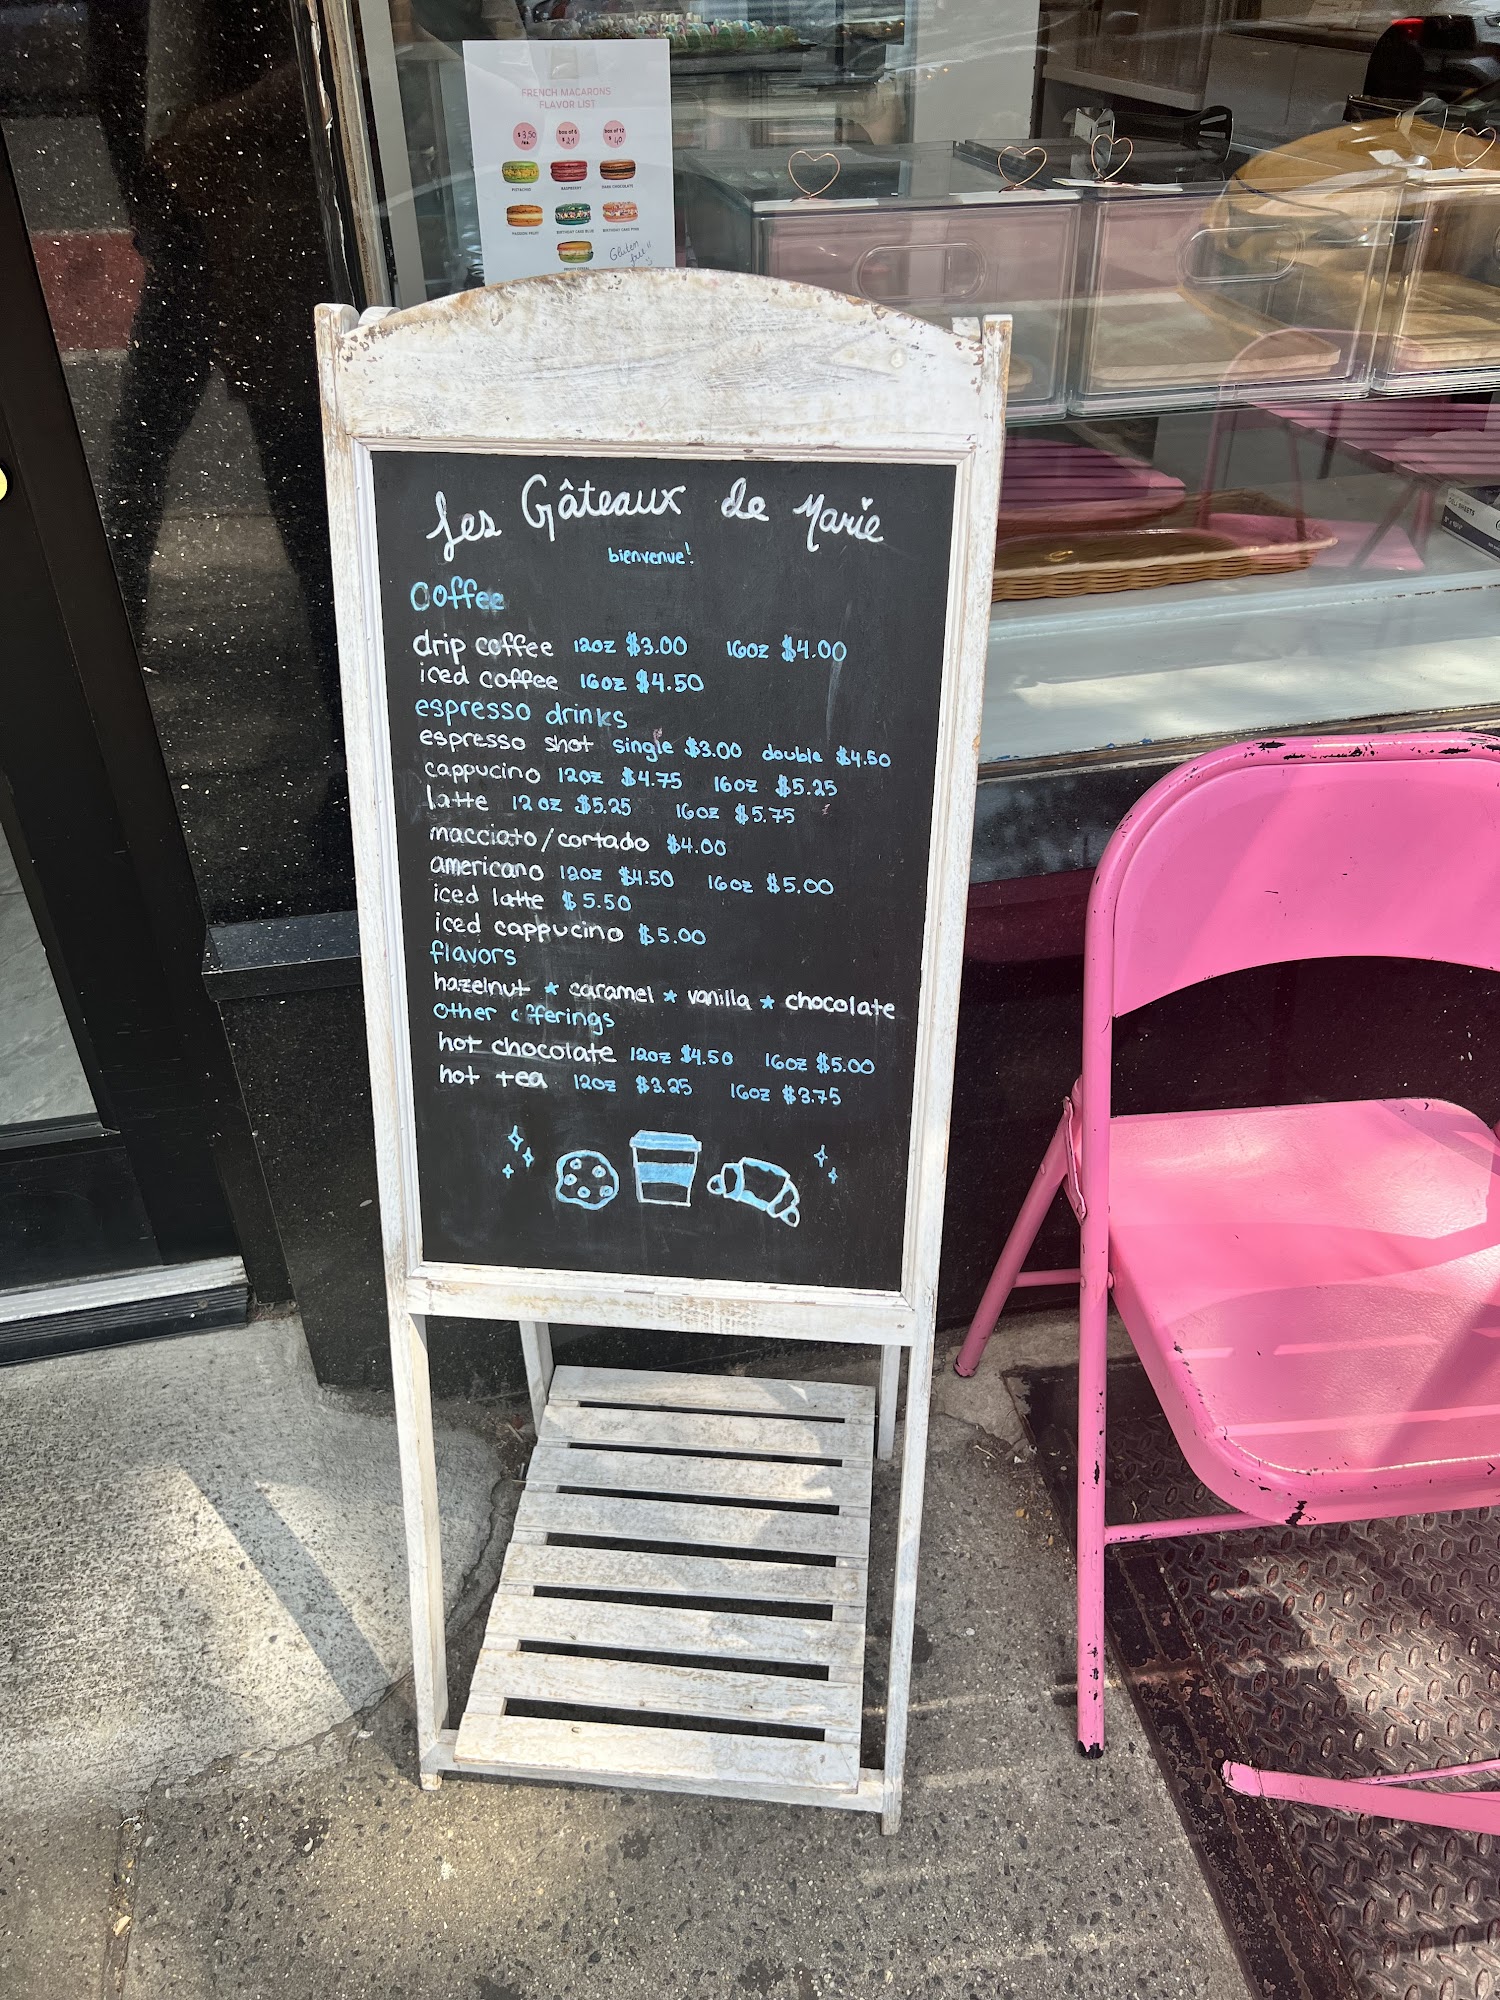 FRENCH MACARONS
FLAVOR LIST
$3.50 box of 6 box of 12
$21 $40
PISTACHIO RASPBERRY DARK CHOCOLATE
PASSION FRUIT BIRTHDAY CAKE BLUE BIRTHDAY CAKE PINK
Gluten
free!!
Les Gâteaux de Marie
bienvenue!
Coffee
drip coffee 12oz $3.00 16oz $4.00
iced coffee 16oz $4.50
espresso drinks
espresso shot single $3.00 double $4.50
cappucino 12oz $4.75 16oz $5.25
latte 12oz $5.25 16oz $5.75
macciato/cortado $4.00
americano 12oz $4.50 16oz $5.00
iced latte $5.50
iced cappucino $5.00
flavors
hazelnut * caramel * vanilla * chocolate
other offerings
hot chocolate 12oz $4.50 16oz $5.00
hot tea 12oz $3.25 16oz $3.75